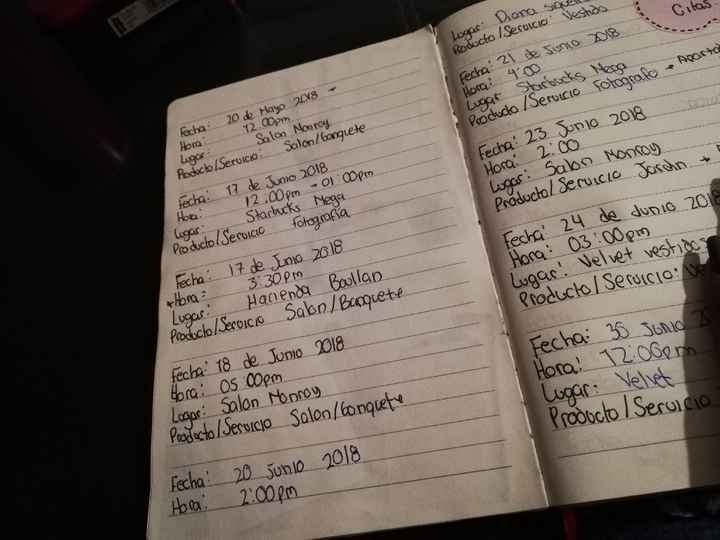 Fecha: 20 de Mayo 2018
Hora: 12.00pm
Lugar: Salon Monroy
Producto/Servicio: Salon/banquete
Fecha: 17 de Junio 2018
Hora: 12.00pm - 01:00pm
Lugar: Starbucks Mega
Producto/Servicio Fotografia
Fecha: 17 de Junio 2018
Hora: 3:30pm
Lugar: Hacienda
Producto/Servicio Salon/Banquete
Fecha: 18 de Junio 2018
Hora: 05:00pm
Lugar: Salon Monroy
Producto/Servicio Salon/banquete
Fecha: 20 Junio 2018
Hora: 2:00pm
Citas
Lugar: Diana
Producto/Servicio: Vestido
Fecha: 21 de Junio 2018
Hora: 4:00
Lugar Starbucks Mega
Producto/Servicio Fotografo
Fecha: 23 Junio 2018
Hora: 2:00
Lugar: Salon Monroy
Producto/Servicio Jardin
Fecha: 24 de Junio 201
Hora: 03:00pm
Lugar: Velvet
Producto/Servicio:
Fecha: 30 Junio
Hora: 12:00pm
Lugar: Velvet
Producto/Servicio